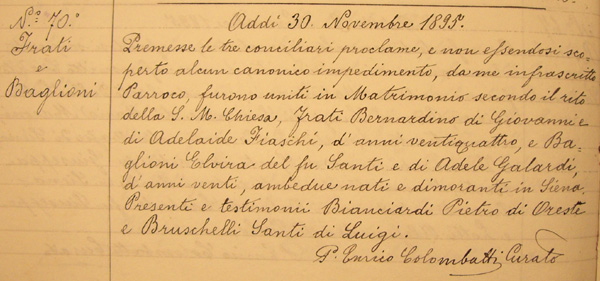 N.º 70.º
Frati
e
Baglioni
Addi 30. Novembre 1895.
Premesse le tre conciliari proclame, e non essendosi sco-
perto alcun canonico impedimento, da me infrascritto
Parroco, furono uniti in Matrimonio secondo il rito
della S. M. Chiesa, Frati Bernardino di Giovanni e
di Adelaide Fiaschi, d'anni ventiquattro, e Ba-
glioni Elvira del fu Santi e di Adele Galardi,
d'anni venti, ambedue nati e dimoranti in Siena.
Presenti e testimonii Bianciardi Pietro di Oreste
e Bruschelli Santi di Luigi.
P. Enrico Colombatti Curato